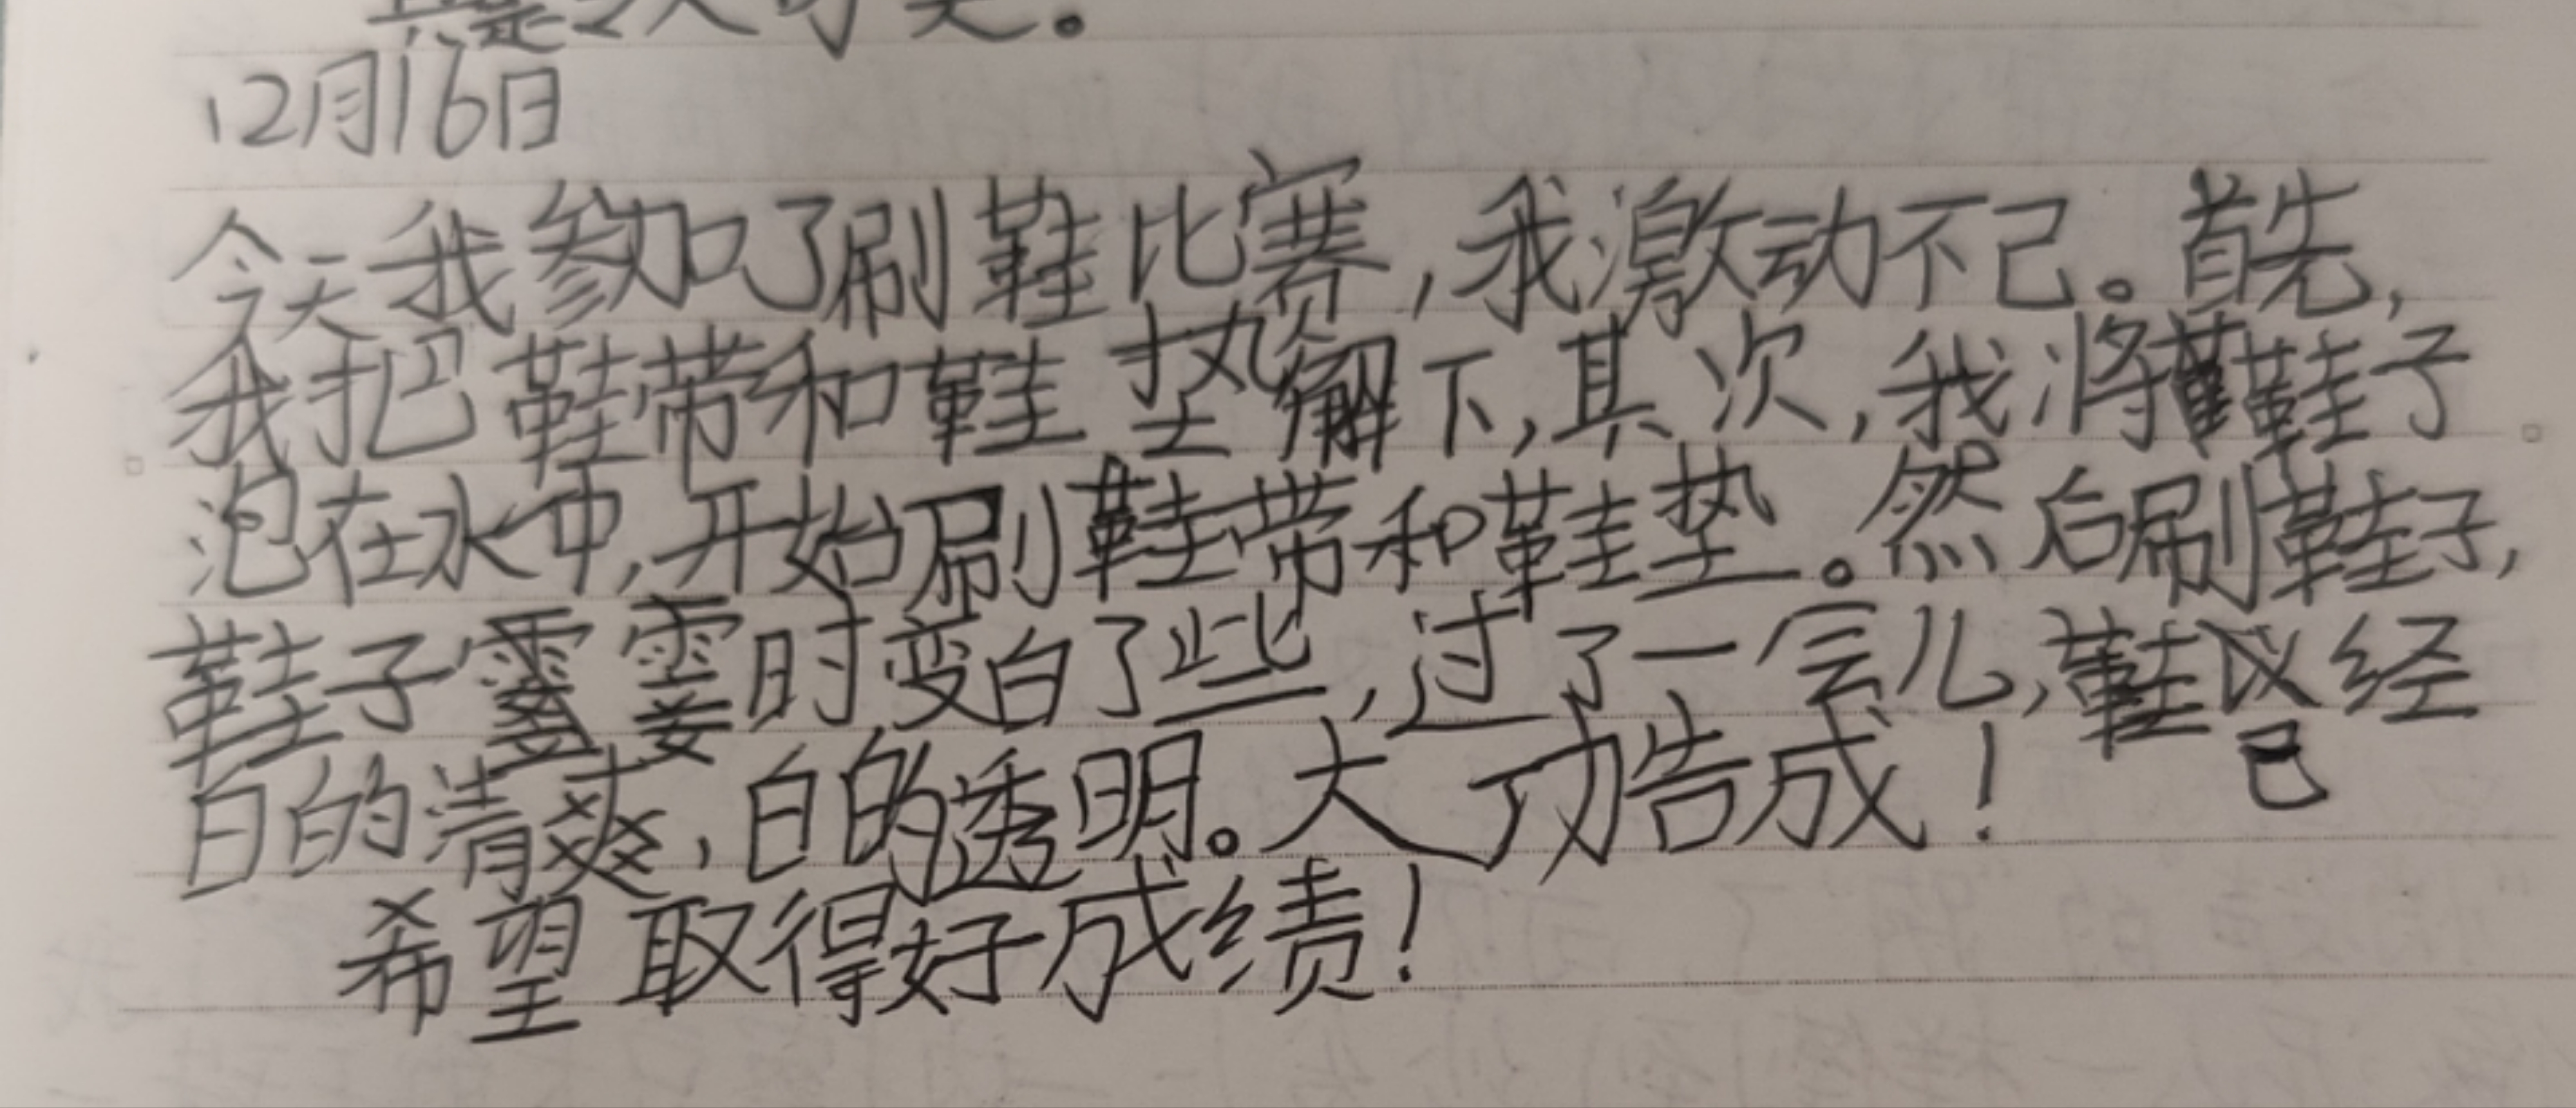 真是令人可笑。
12月16日
今天我参加了刷鞋比赛,我激动不己。首先,
我把鞋带和鞋垫解下,其次,我将鞋子
泡在水中,开始刷鞋带和鞋垫。然后刷鞋子,
鞋子霎时变白了些,过了一会儿,鞋已经
白的清爽,白的透明。大功告成!
希望取得好成绩!